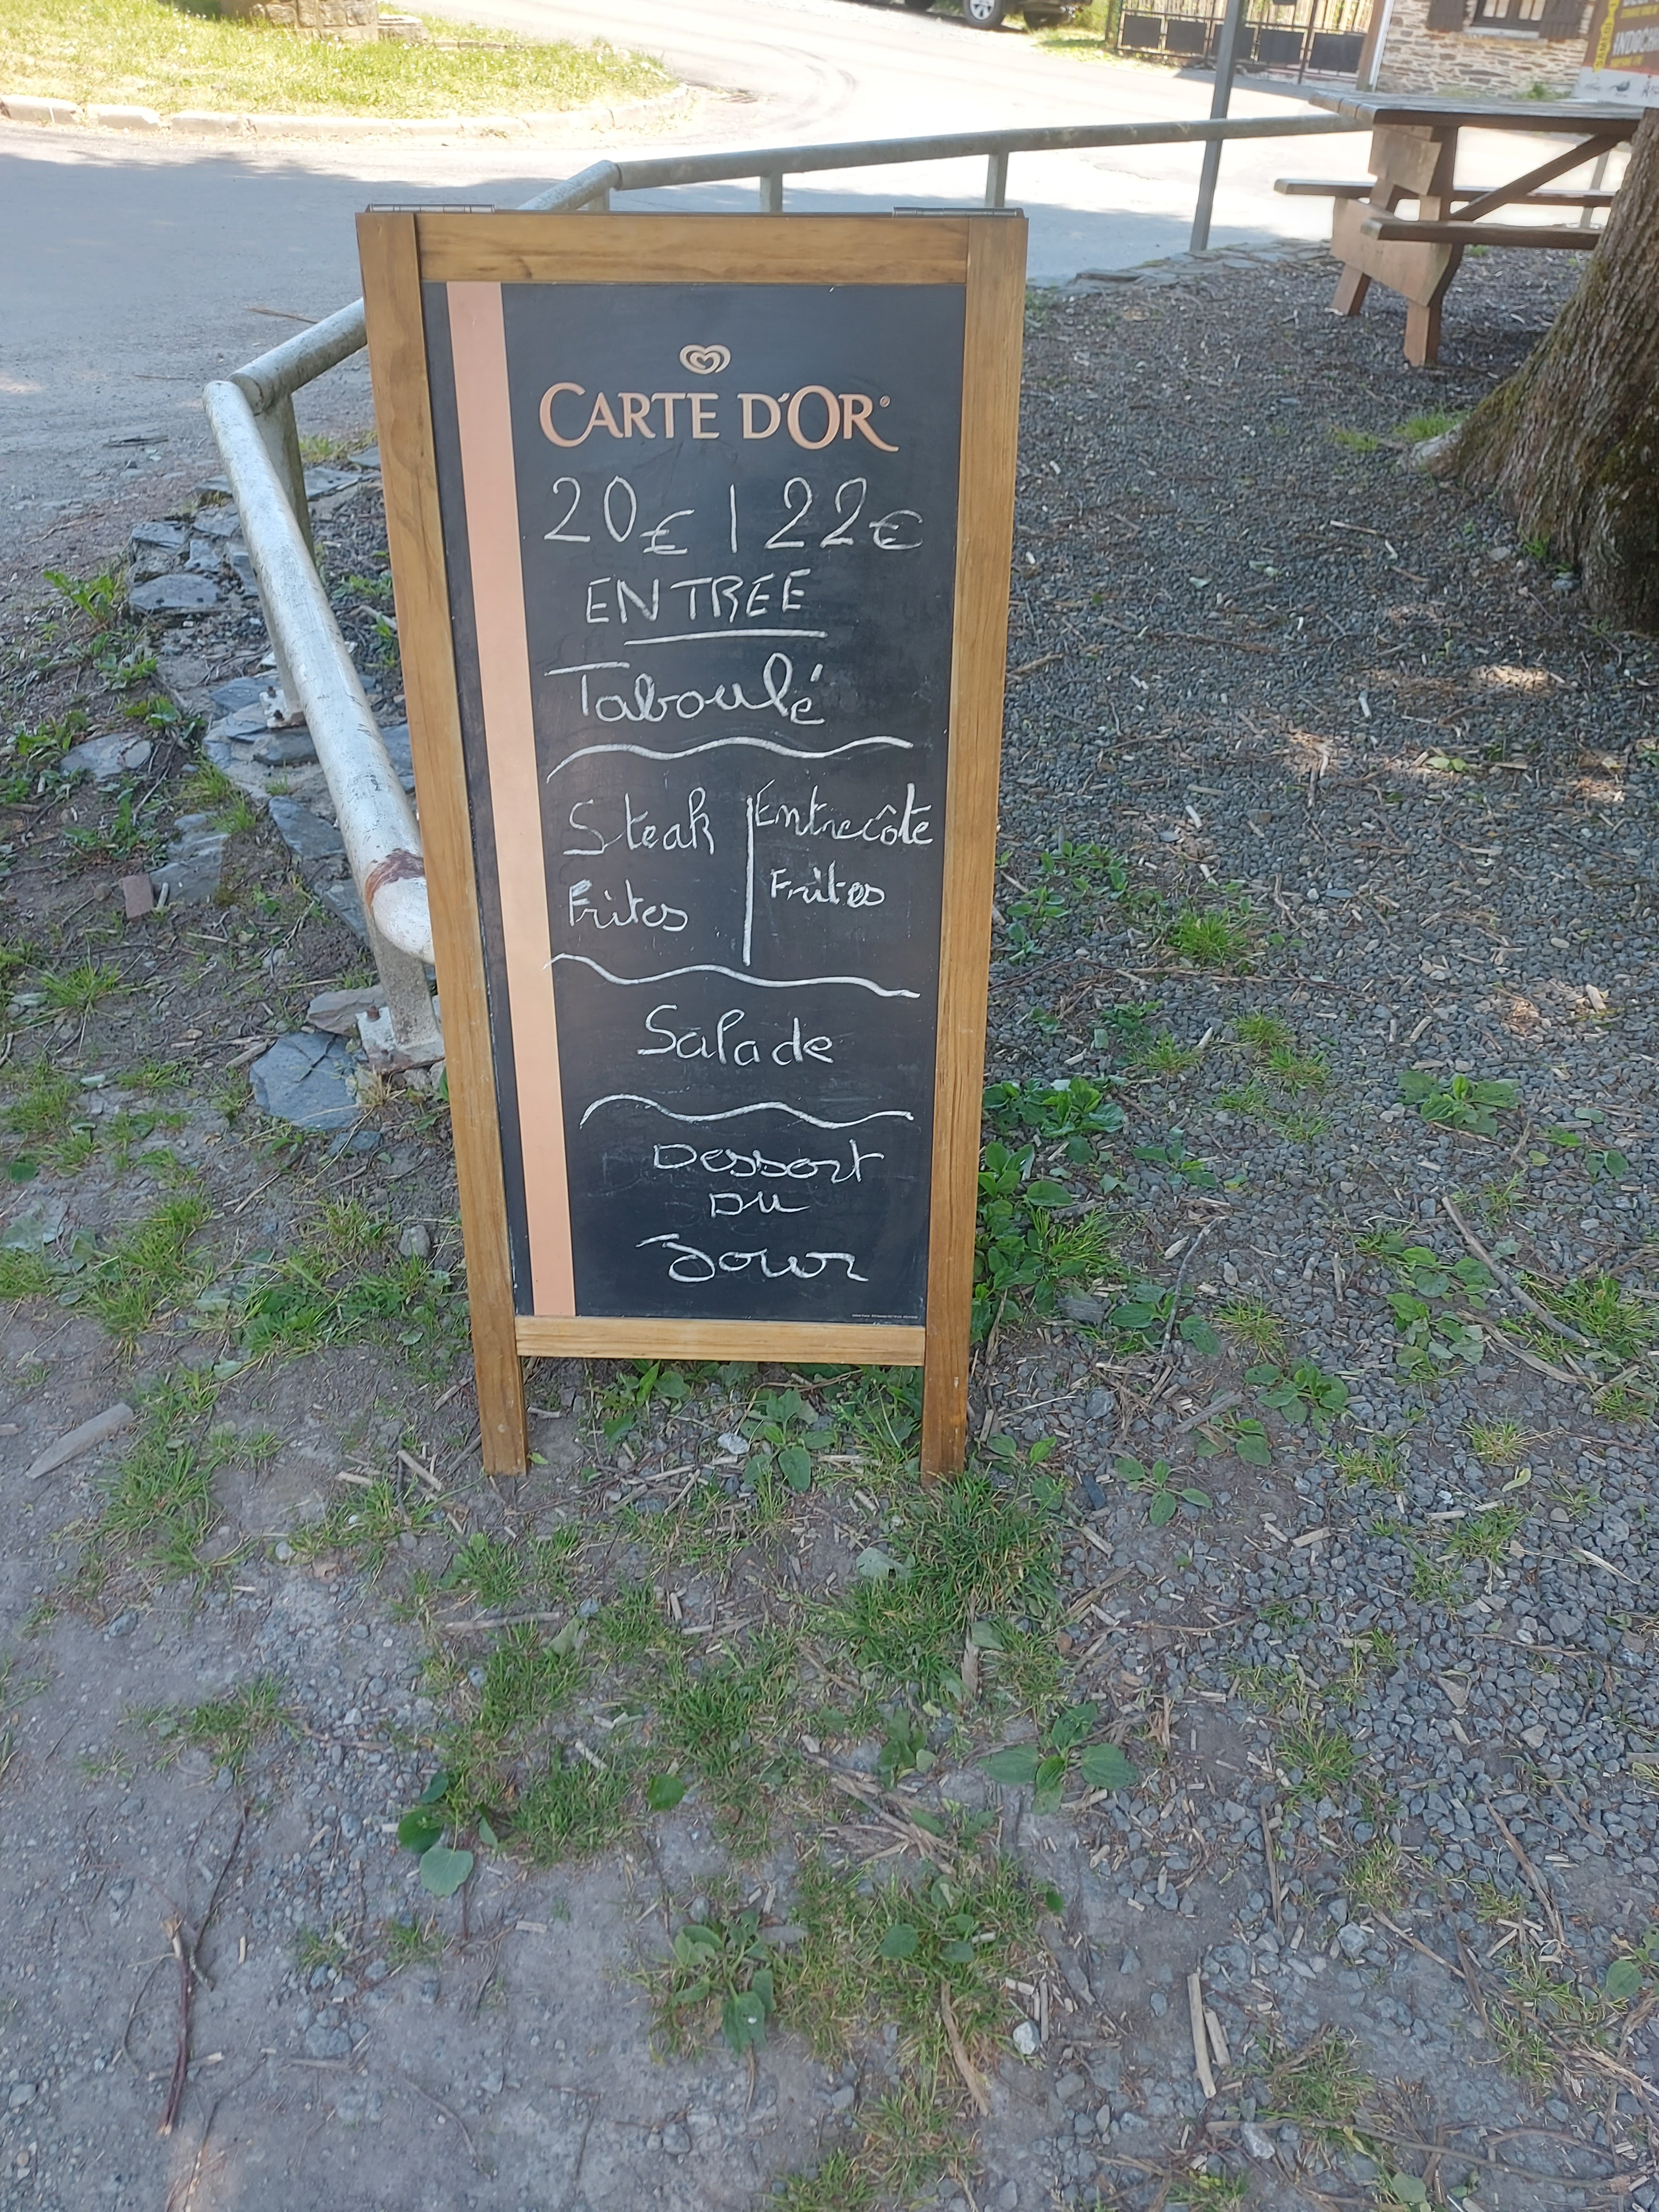 CARTE D'OR
20€ | 22€
ENTREE
Taboulé
Steak | Entrecôte
Frites | Frites
Salade
Dessert
DU
Jour